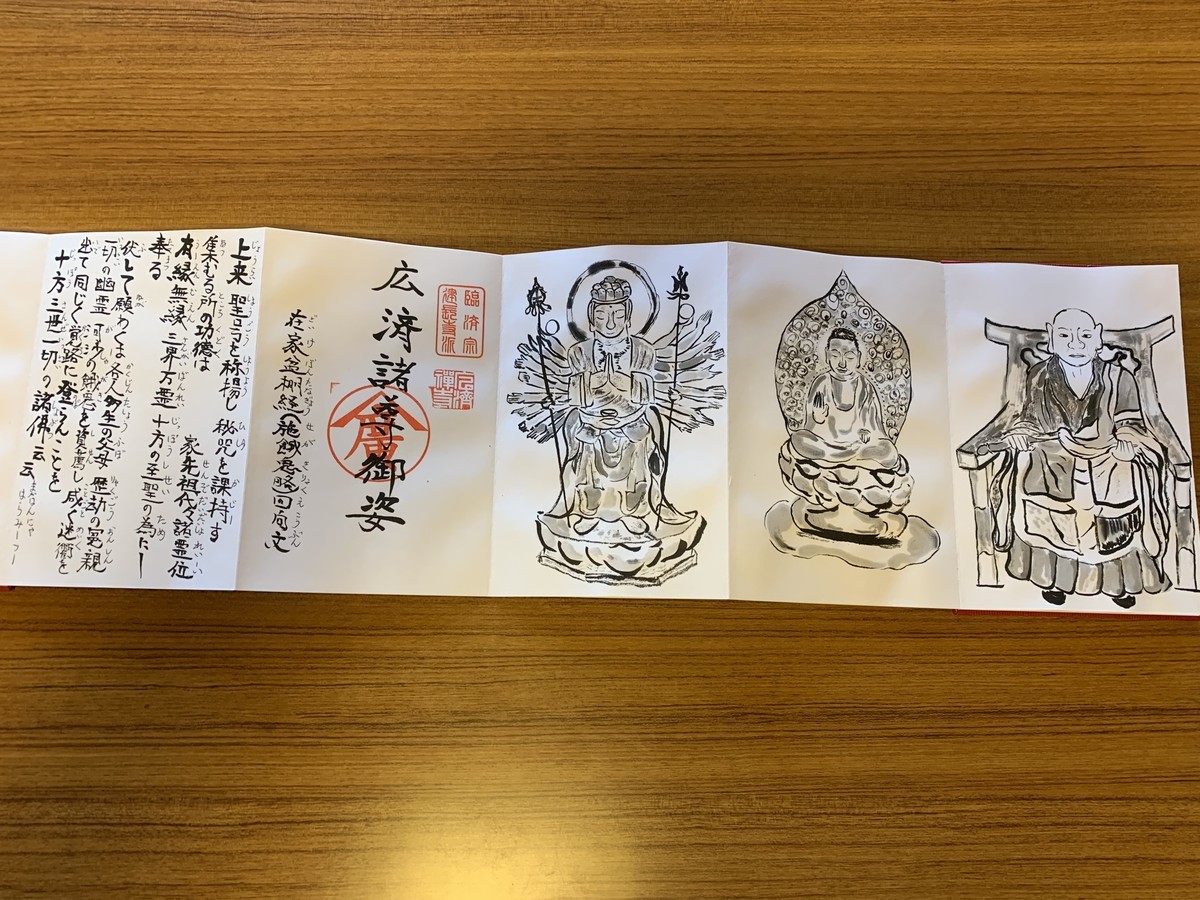 臨済宗
建長寺派
廣
広済諸尊御姿
在家盆棚経(施餓鬼略回向文
上来 聖号を称揚し 秘咒を課持す
集むる所の功徳は 家先祖代々諸霊位
有縁無縁 三界万霊 十方の至聖の為にし
奉る
伏して願わくは 各人 多生の父母 歴劫の冤親
一切の幽霊 の餓患を資薦し 咸く迷衢を
出て同じく覚路に登らんことを
十方三世一切の諸佛 云云
まはんにゃ
はらみーつー